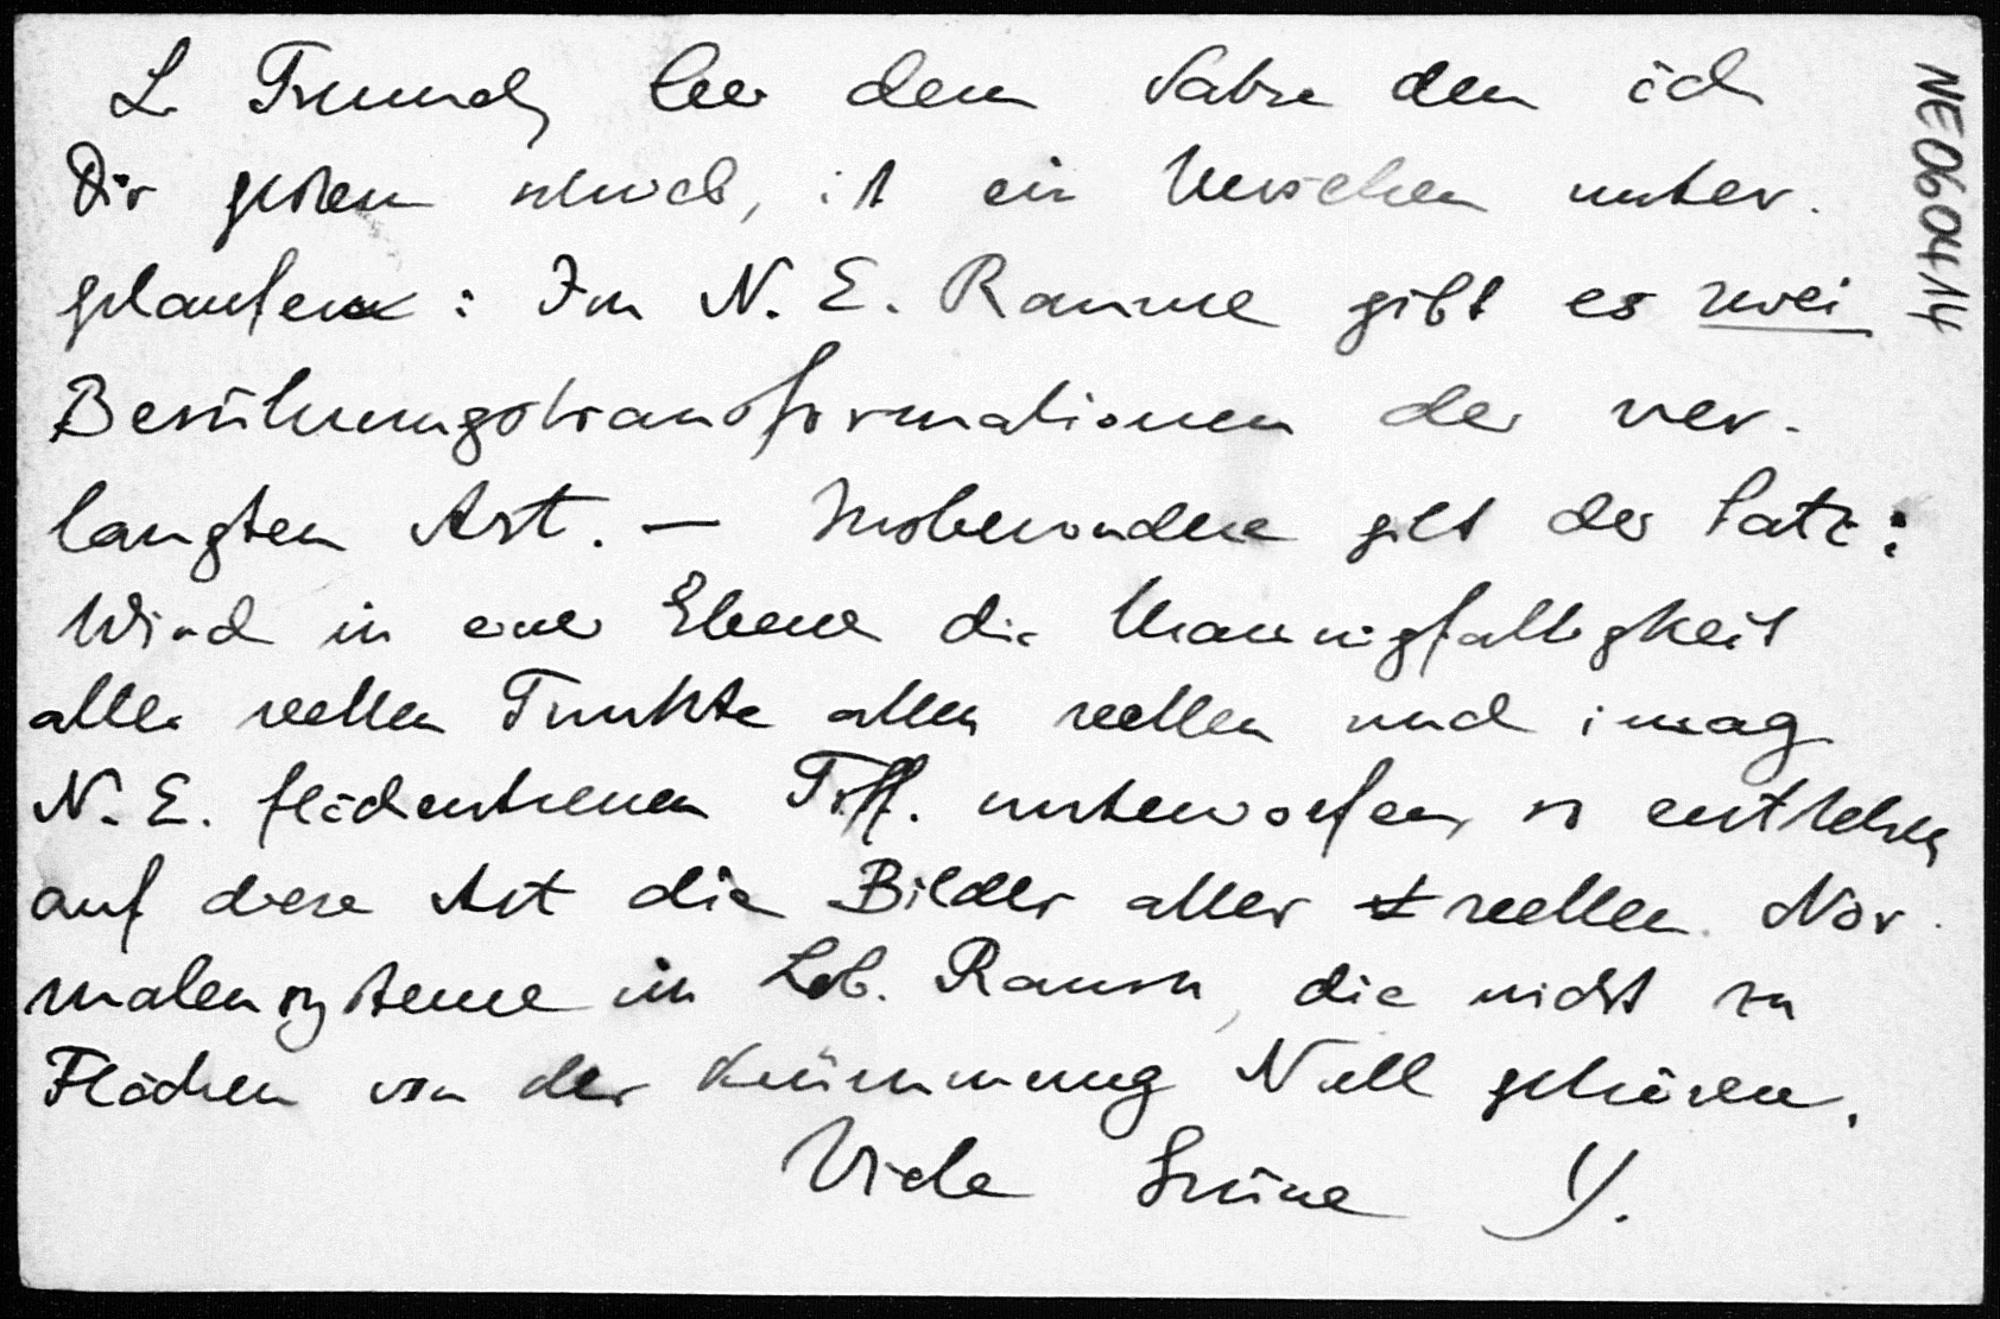 L. Freund, bei dem Satze den ich
Dir gestern schrieb, ist ein Versehen unter-
gelaufen: Im N. E. Raume gibt es zwei
Berührungstransformationen der ver-
langten Art. — Insbesondere gilt der Satz:
Wird in einer Ebene die Mannigfaltigkeit
aller reellen Punkte allen reellen und imag
N. E. flächentreuen Trff. unterworfen, so entstehen
auf diese Art die Bilder aller reellen Nor-
malensysteme im Lob. Raum, die nicht zu
Flächen von der Krümmung Null gehören.
Viele Grüße Y.
NE060414